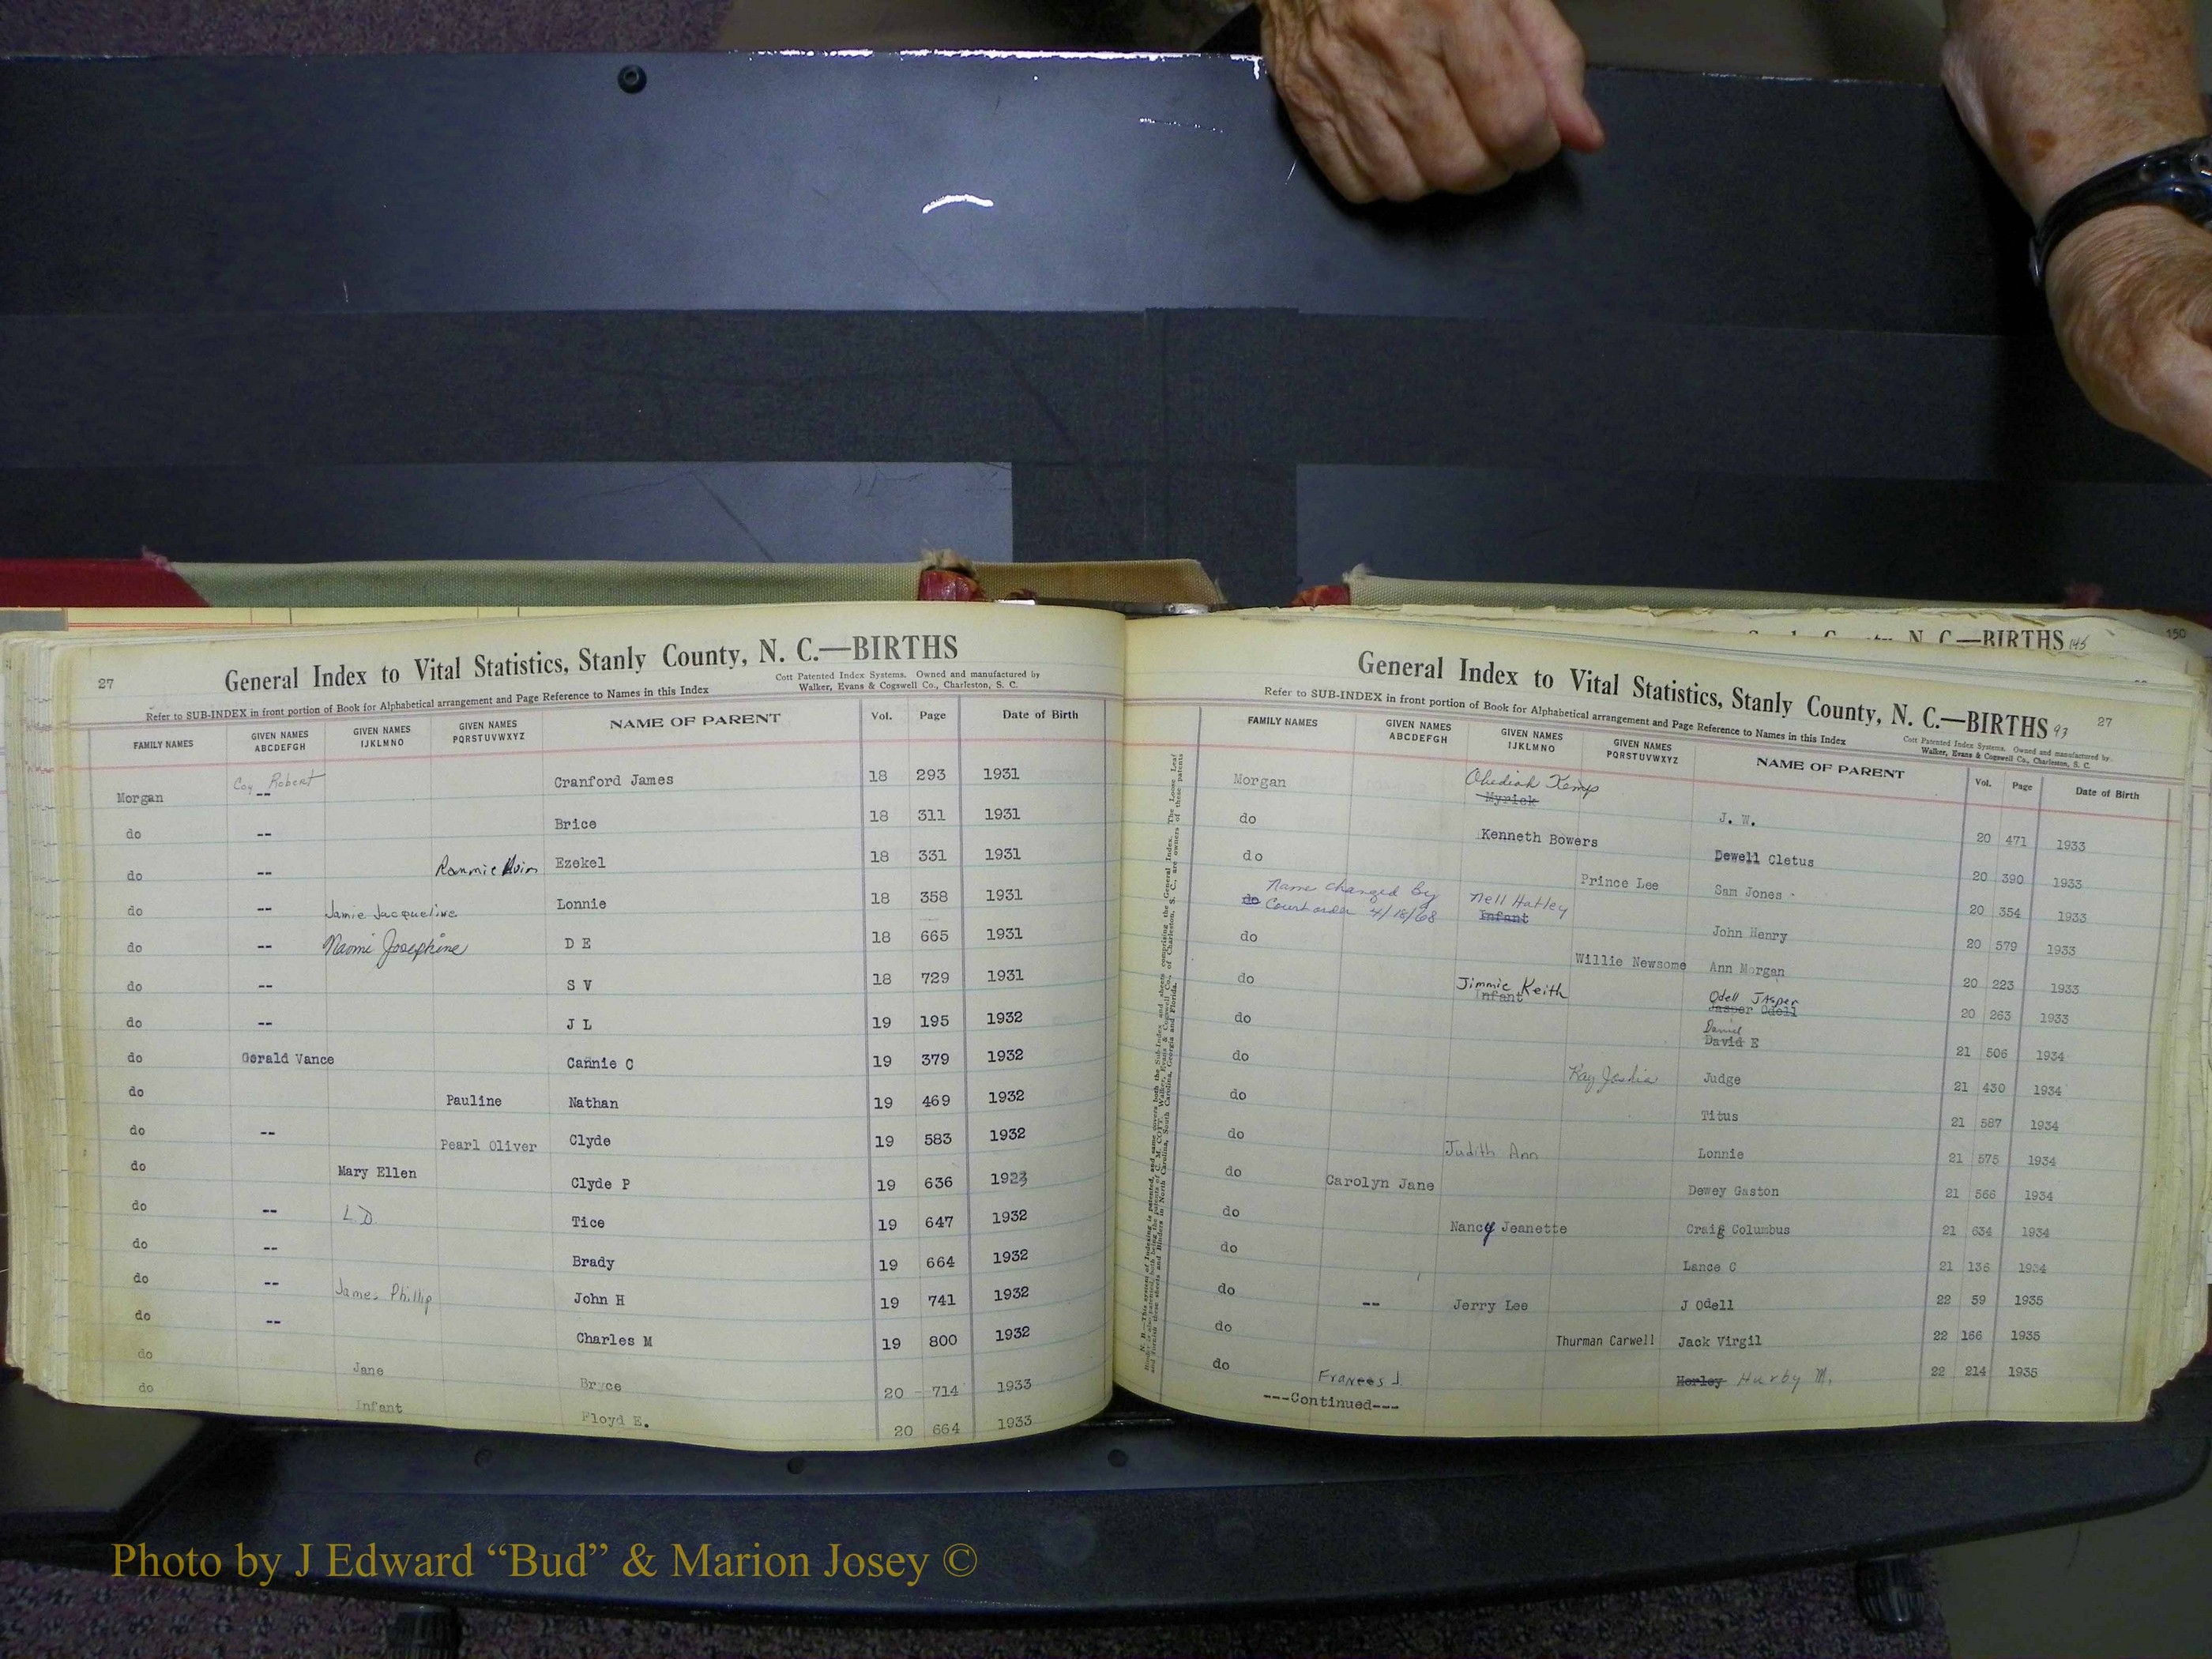 27
General Index to Vital Statistics, Stanly County, N. C.—BIRTHS
Cott Patented Index Systems. Owned and manufactured by
Walker, Evans & Cogswell Co., Charleston, S. C.
Refer to SUB-INDEX in front portion of Book for Alphabetical arrangement and Page Reference to Names in this Index
FAMILY NAMES GIVEN NAMES ABCDEFGH GIVEN NAMES IJKLMNO GIVEN NAMES PQRSTUVWXYZ NAME OF PARENT Vol. Page Date of Birth
Morgan Coy Robert -- Cranford James 18 293 1931
do -- Brice 18 311 1931
do -- Ezekel 18 331 1931
do -- Jamie Jacqueline Lonnie 18 358 1931
do -- Naomi Josephine D E 18 665 1931
do -- S V 18 729 1931
do -- J L 19 195 1932
do Gerald Vance Cannie C 19 379 1932
do Pauline Nathan 19 469 1932
do -- Pearl Oliver Clyde 19 583 1932
do Mary Ellen Clyde P 19 636 1923
do -- L.D. Tice 19 647 1932
do -- Brady 19 664 1932
do -- James Phillip John H 19 741 1932
do -- Charles M 19 800 1932
do Jane Bryce 20 - 714 1933
do Infant Floyd E. 20 664 1933
N. C.—BIRTHS 145
150
General Index to Vital Statistics, Stanly County, N. C.—BIRTHS 93
27
Refer to SUB-INDEX in front portion of Book for Alphabetical arrangement and Page Reference to Names in this Index
Cott Patented Index Systems. Owned and manufactured by
Walker, Evans & Cogswell Co., Charleston, S. C.
FAMILY NAMES GIVEN NAMES ABCDEFGH GIVEN NAMES IJKLMNO GIVEN NAMES PQRSTUVWXYZ NAME OF PARENT Vol. Page Date of Birth
Morgan Obediah Kemp Myrick J. W. 20 471 1933
do Kenneth Bowers Dewell Cletus 20 390 1933
do Prince Lee Sam Jones 20 354 1933
do Name changed By Court order 4/18/68 Nell Hatley Infant John Henry 20 579 1933
do Willie Newsome Ann Morgan 20 223 1933
do Jimmie Keith Infant Odell Jasper Jasper Odell 20 263 1933
do Daniel David E 21 506 1934
do Kay Judge 21 430 1934
do Titus 21 587 1934
do Judith Ann Lonnie 21 575 1934
do Carolyn Jane Dewey Gaston 21 566 1934
do Nancy Jeanette Craig Columbus 21 634 1934
do Lance C 21 136 1934
do -- Jerry Lee J Odell 22 59 1935
do Thurman Carwell Jack Virgil 22 166 1935
do Frances J. Horley Hurby M. 22 214 1935
---Continued---
Photo by J Edward “Bud” & Marion Josey ©